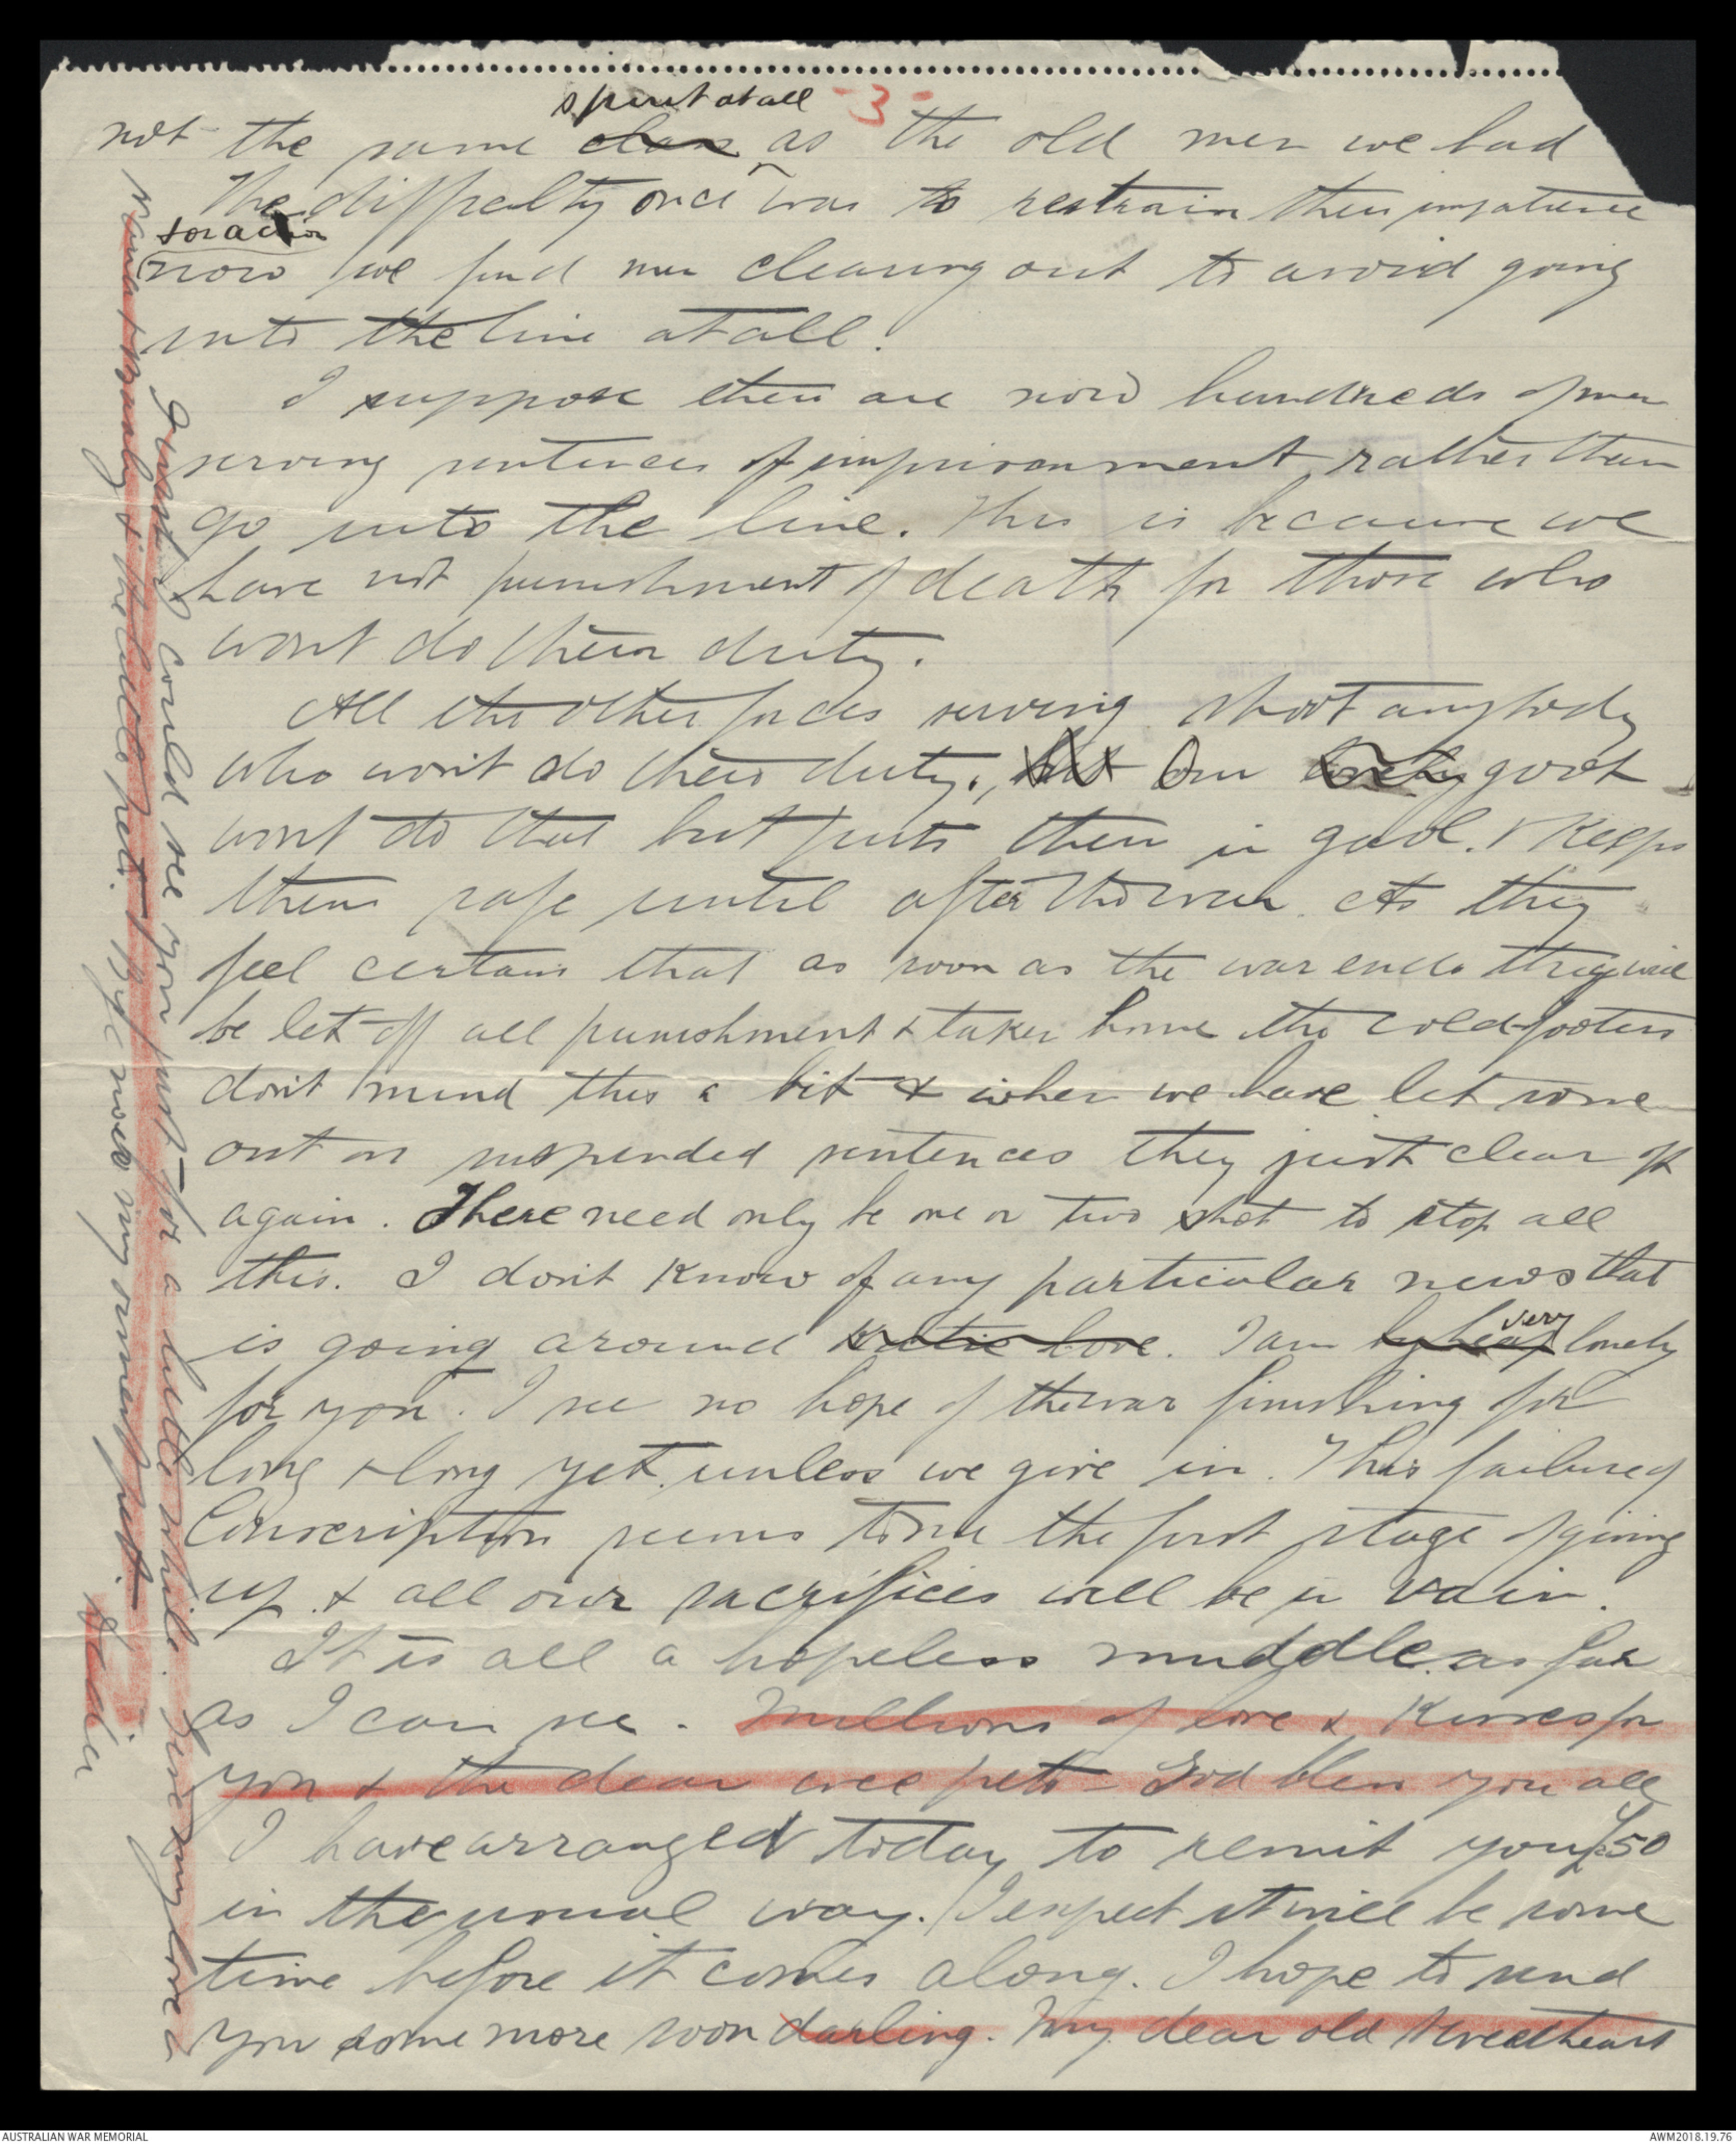 - 3 -
spirit at all
not the same class as the old men we had
The difficulty once was to restrain their impatience
for action
now we find men clearing out to avoid going
into the line at all.
I suppose there are now hundreds of men
serving sentences of imprisonment, rather than
go into the line. This is because we
have not punishment of death for those who
wont do their duty.
All the other forces serving shoot anybody
who won't do their duty., but Our govt
wont do that but puts them in gaol. & keeps
them safe until after the war. As they
feel certain that as soon as the war ends they will
be let off all punishment & taken home the coldfooters
don't mind this a bit & when we have let some
out on suspended sentences they just clear off
again. There need only be one or two shot to stop all
this. I don't know of any particular news that
is going around Katie love. I am very lonely
for you. I see no hope of the war finishing for
long & long yet unless we give in. This failure of
Conscription seems to me the first stage of giving
up & all our sacrifices will be in vain.
It is all a hopeless muddle as far
as I can see. Millions of love & Kisses for
you & the dear wee pets - God bless you all
I have arranged today to remit you £50
in the usual way. I expect it will be some
time before it comes along. I hope to send
you some more soon darling. My dear old sweetheart
I wish I could see you just for a little while. Give my love to
& the wee pets. Bye now my sweet pet.